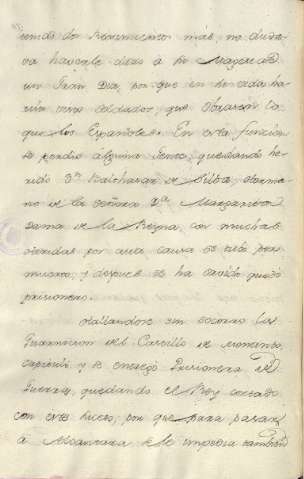 tenido dos Regimientos más, no dexa-
va haverle dado a la Magestad
un Gran Dia, por que en la cada ha-
rían otros soldados, que obraron lo
que los Españoles. En esta función
se perdio alguna gente, quedando he-
rido Dn Balthasar de Silba, herma-
no de la Señora Da Margarita
Dama de la Reyna, con muchas
heridas por cuia causa se tubo por
muerto, y despues se ha savido quedó
prisionero.
Hallandose sin socorro la
Guarnicion del Castillo de
capituló y se entregó Prisionera de
Guerra, quedando el Rey cortado
con este suceso, por que para pasar
a Alcantara se le impedia tambien